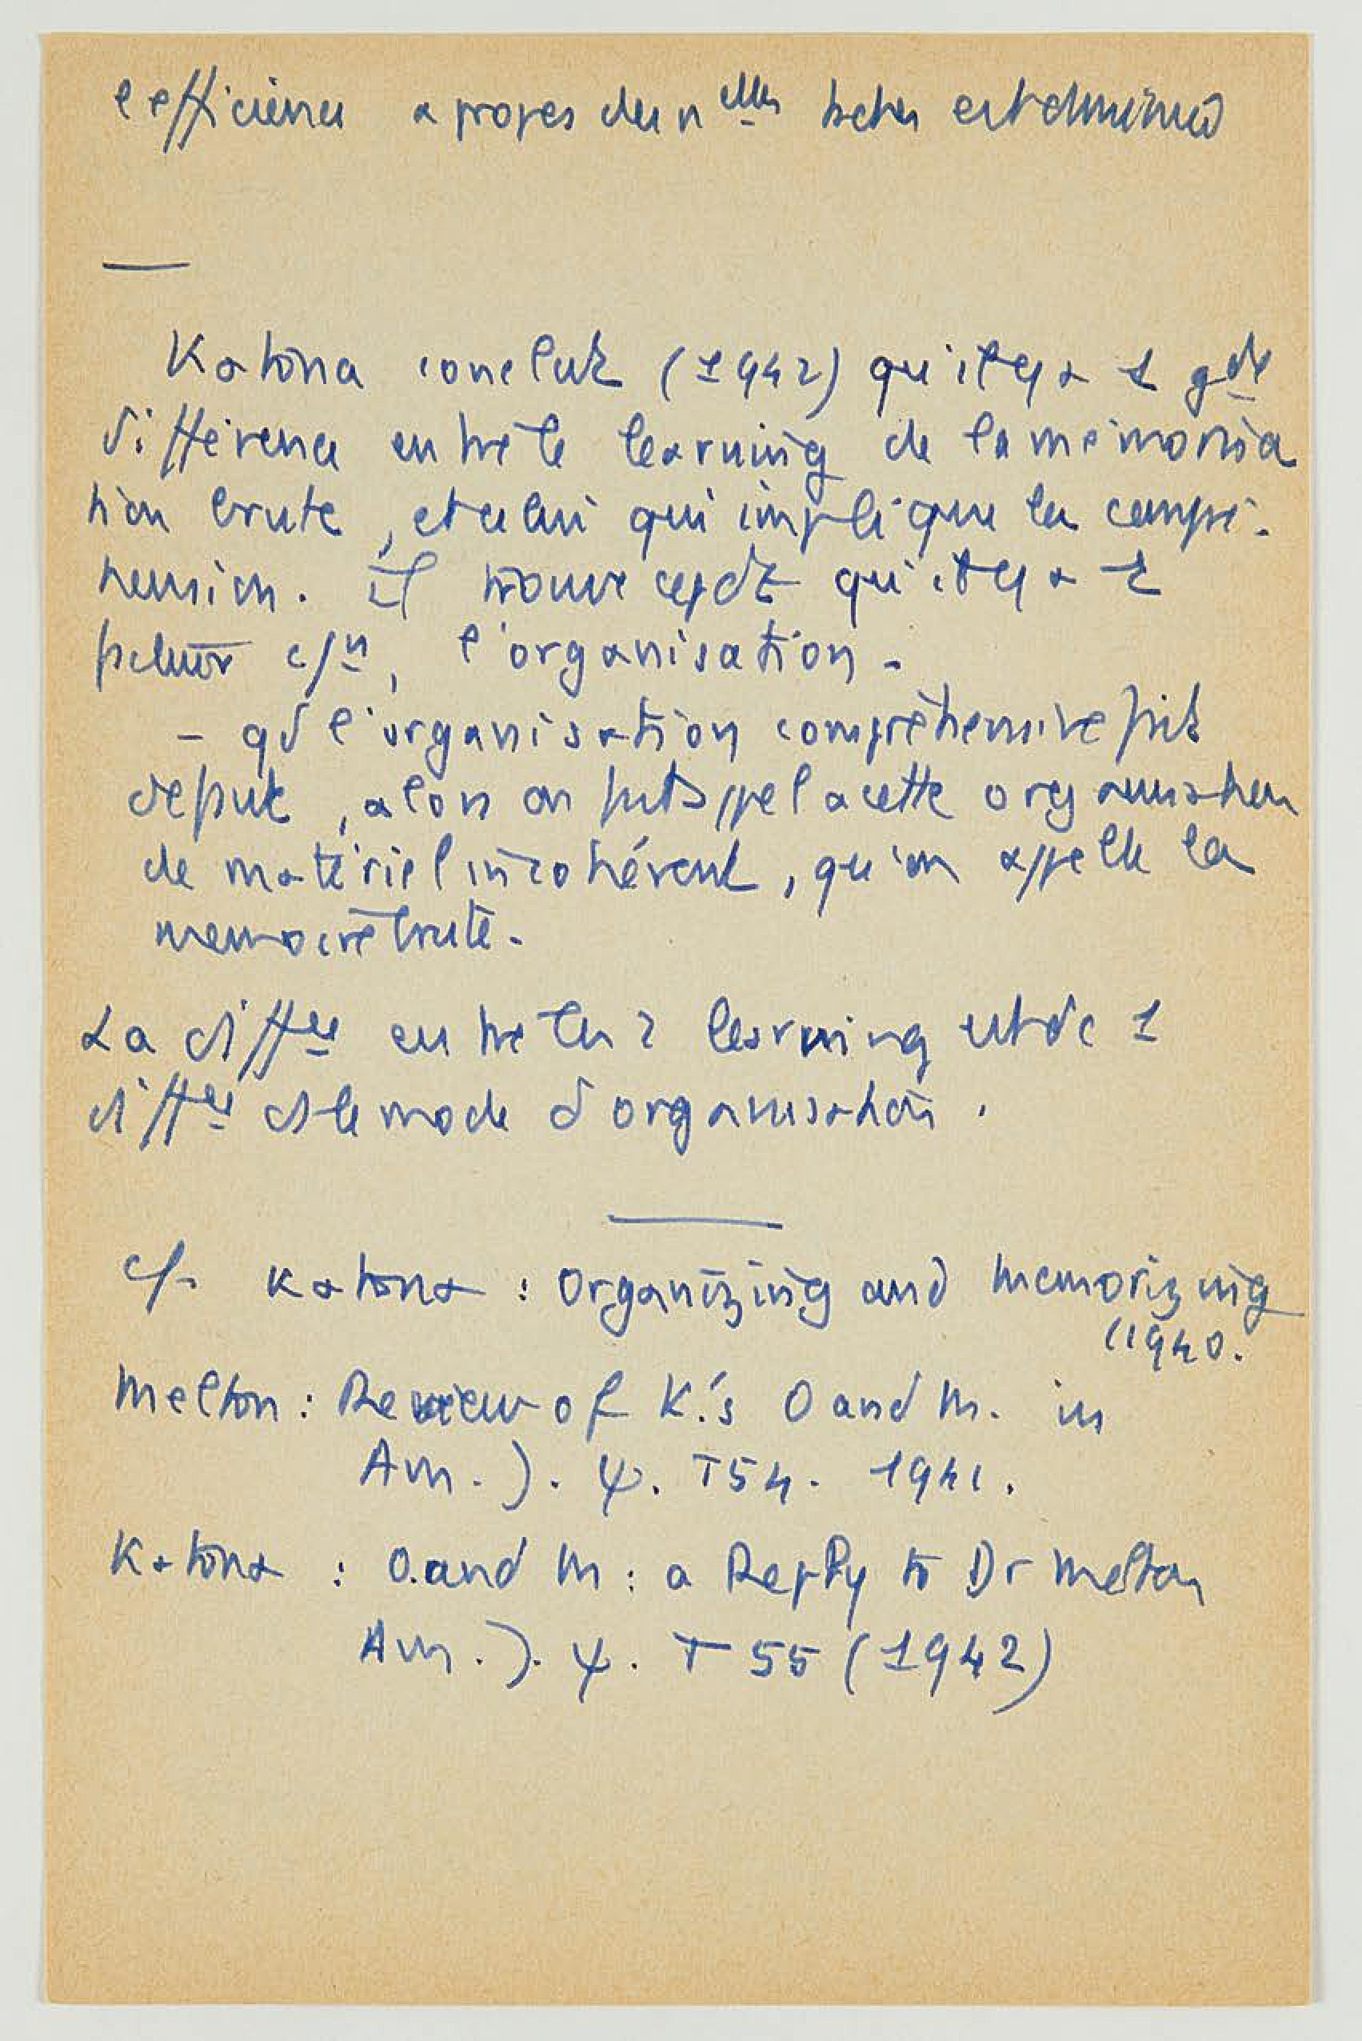 l'efficience à propos des n^elles taches est diminuée
Katona conclut (1942) qu'il y a 1 g^de
différence entre le learning de la mémorisa
tion brute, et celui qui implique la compré-
hension. Il trouve cepdt qu'il y a 1
facteur c/n, l'organisation.
- qd l'organisation compréhensive fait
défaut, alors on fait appel a cette organisation
de matériel incohérent, qu'on appelle la
memoire brute.
La diff^ce entre les 2 learning est de 1
diff^ce ds le mode d'organisation.
cf. Katona : Organizing and memorizing
(1940.
Melton : Review of K.'s O and M. in
Am. J. ψ. T54. 1941.
Katona : O. and M : a Reply to Dr Melton
Am. J. ψ. T 55 (1942)